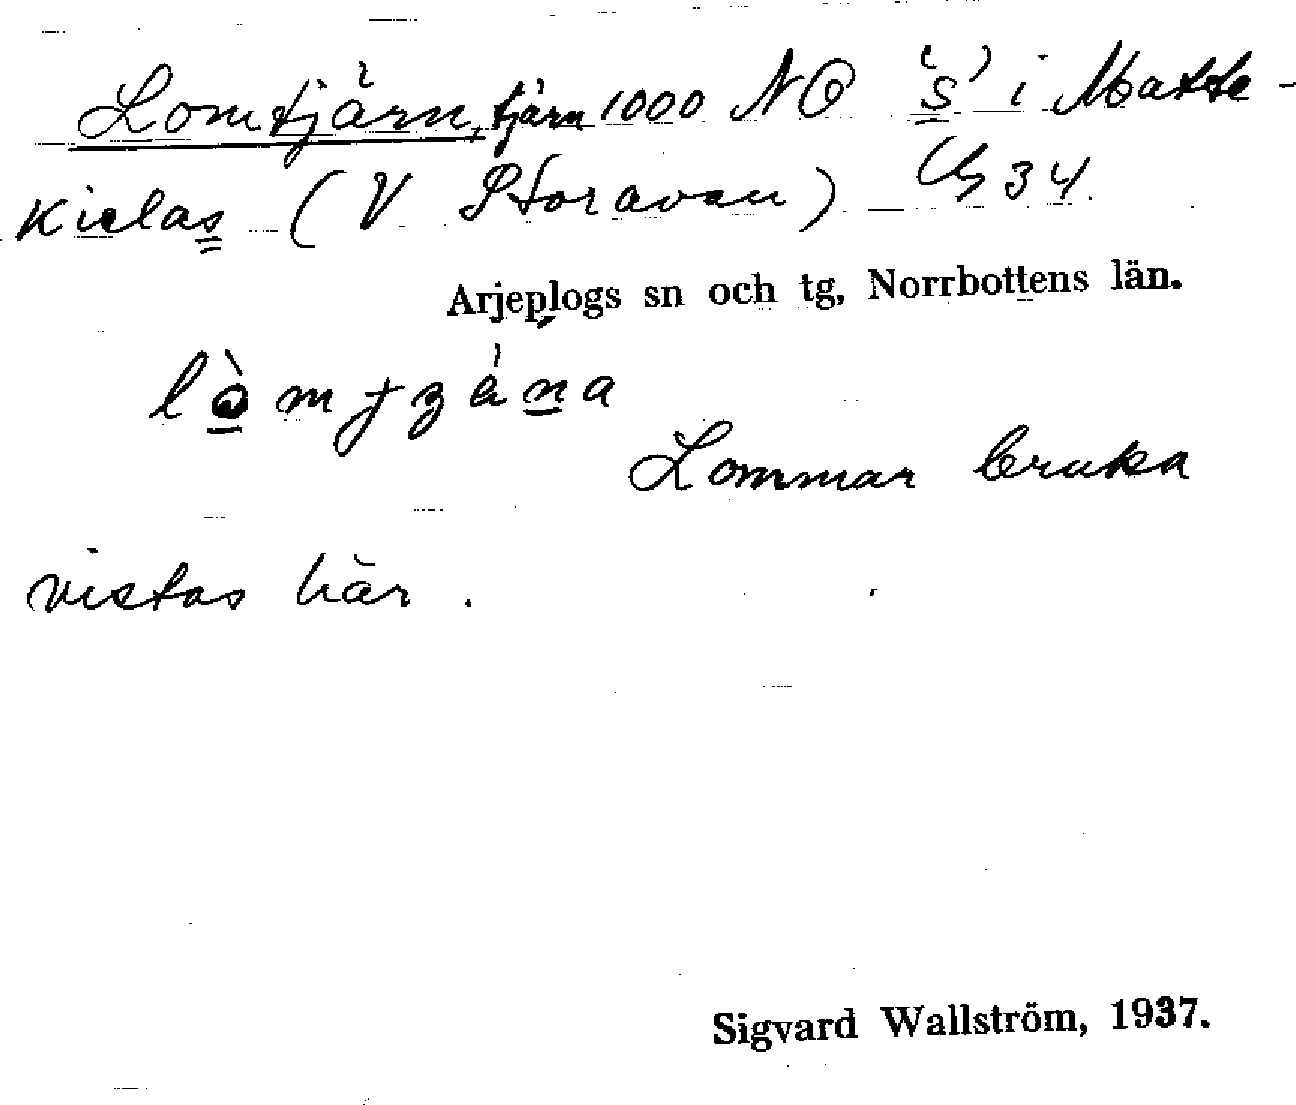 Lomtjärn, tjärn 1000 NO 's' i Matte-
kielas (V Storavan) G 34.
Arjeplogs sn och tg, Norrbottens län.
Lommar bruka
vistas här.
Sigvard Wallström, 1937.